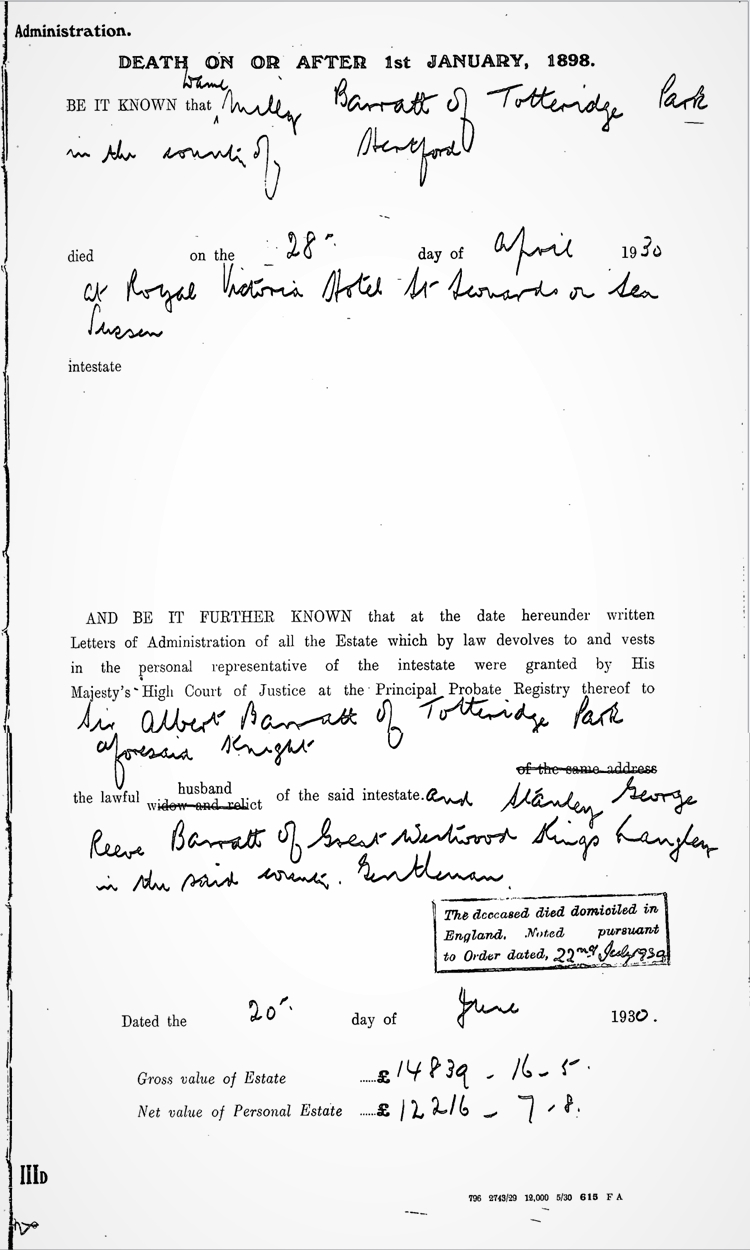 Administration.
DEATH ON OR AFTER 1st JANUARY, 1898.
Dame
BE IT KNOWN that Milly Barratt of Totteridge Park
in the county of Hertford
died on the 28th day of April 1930
at Royal Victoria Hotel St Leonards on Sea
Sussex
intestate
AND BE IT FURTHER KNOWN that at the date hereunder written
Letters of Administration of all the Estate which by law devolves to and vests
in the personal representative of the intestate were granted by His
Majesty's High Court of Justice at the Principal Probate Registry thereof to
Sir Albert Barratt of Totteridge Park
aforesaid Knight
of the same address
husband
the lawful widow and relict of the said intestate. and Stanley George
Reeve Barratt of Great Westwood Kings Langley
in the said county. Gentleman.
The deceased died domiciled in
England. Noted pursuant
to Order dated, 22nd July 1930
Dated the 20th day of June 1930.
Gross value of Estate ......£ 14839 - 16 - 5.
Net value of Personal Estate ......£ 12216 - 7 - 8.
IIID
796 2743/29 12,000 5/30 615 F A